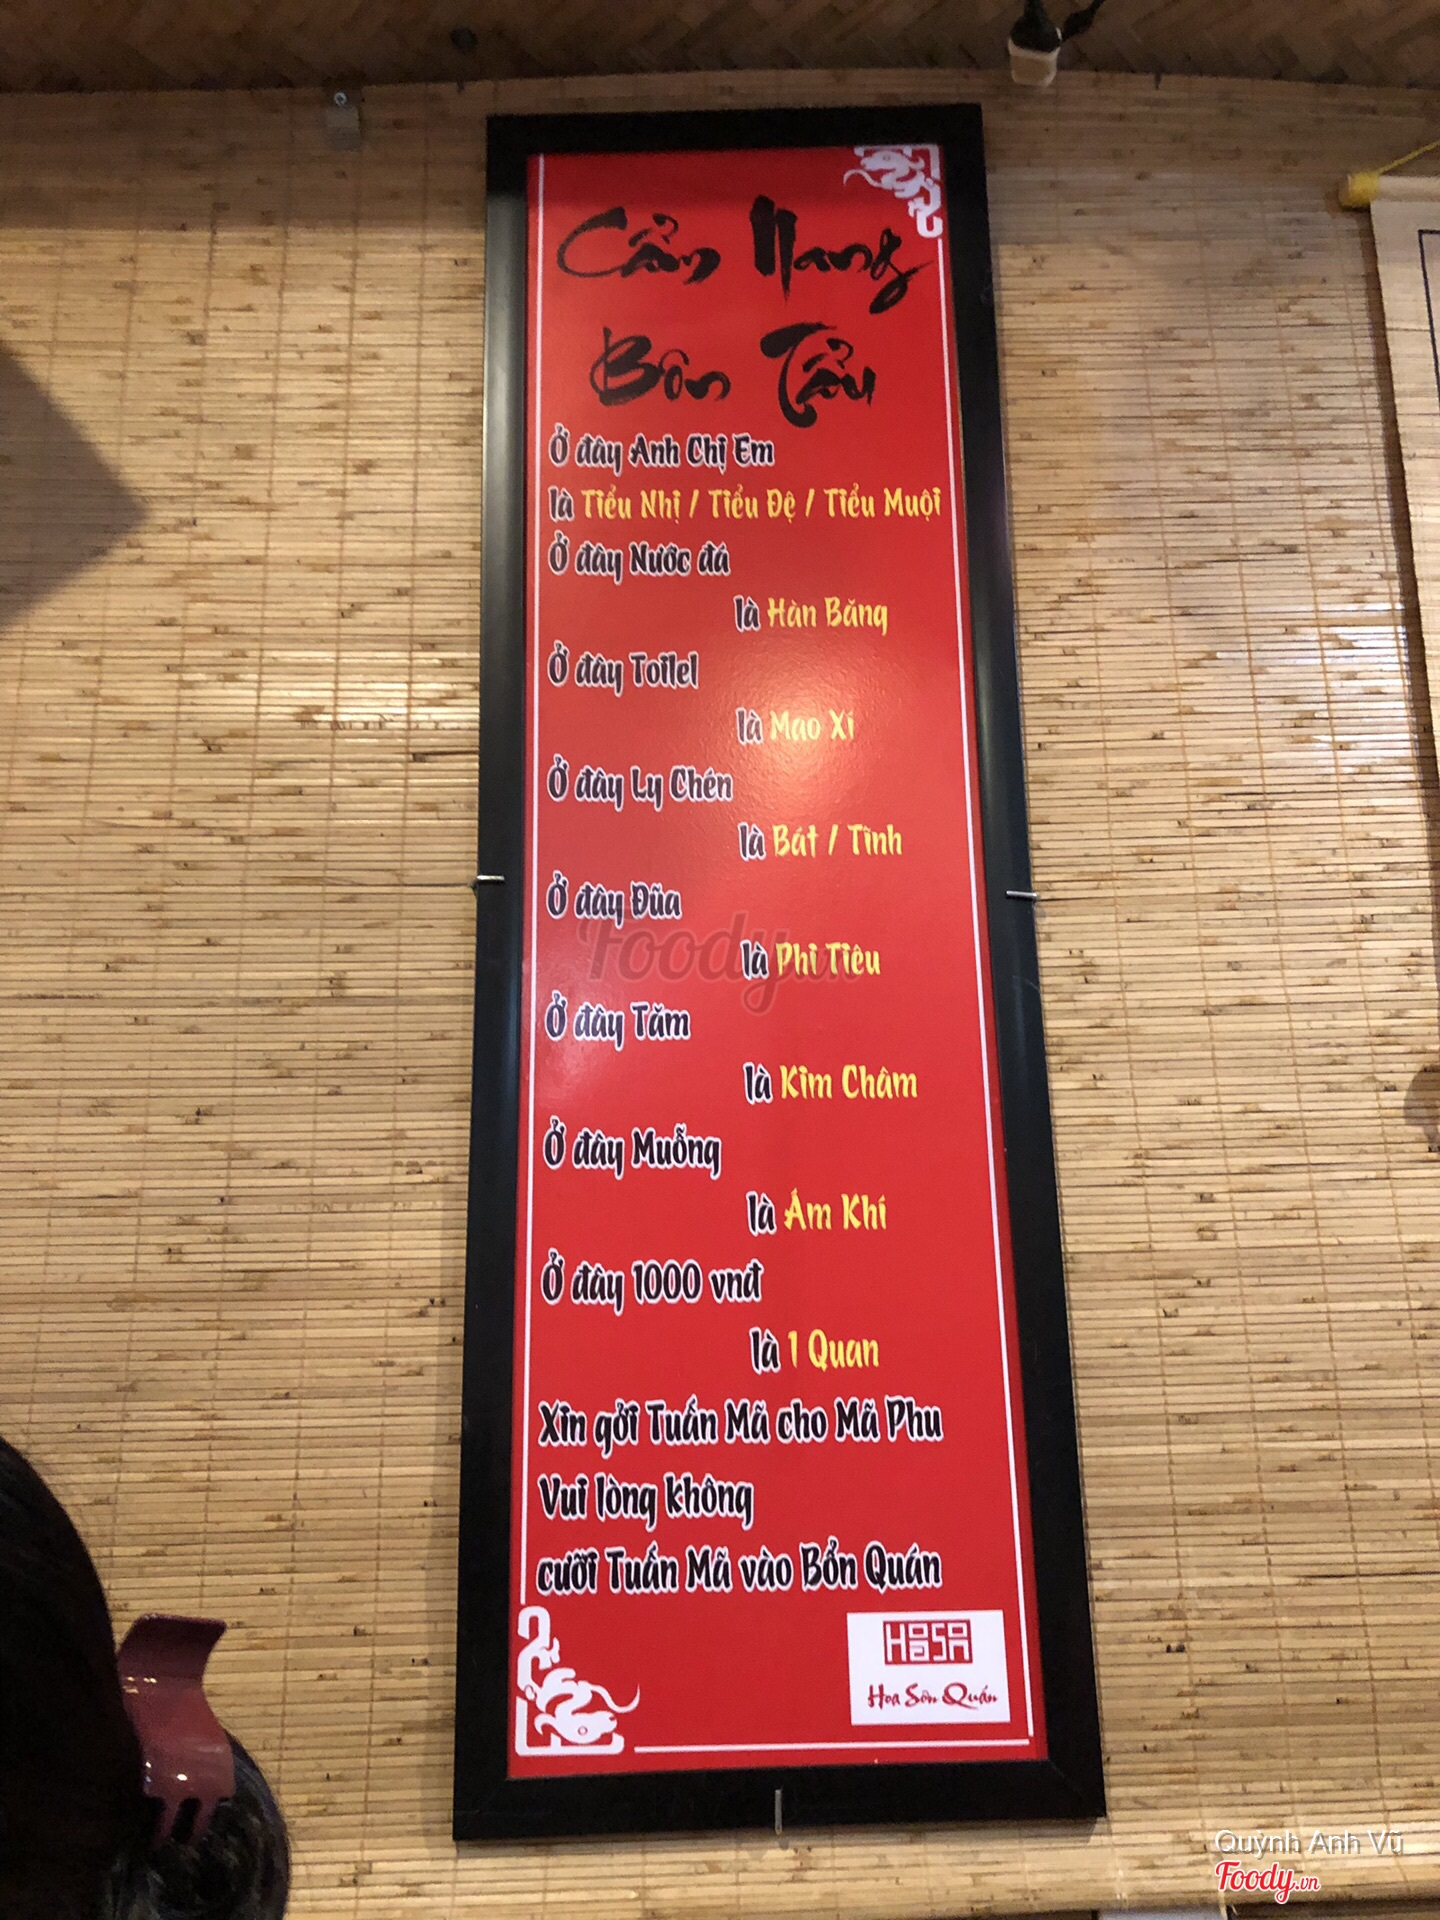 Cẩm Nang
Bôn Tẩu
Ở đây Anh Chị Em
là Tiểu Nhị / Tiểu Đệ / Tiểu Muội
Ở đây Nước đá
là Hàn Băng
Ở đây Toilel
là Mao Xí
Ở đây Ly Chén
là Bát / Tĩnh
Ở đây Đũa
là Phi Tiêu
Ở đây Tăm
là Kim Châm
Ở đây Muỗng
là Ám Khí
Ở đây 1000 vnđ
là 1 Quan
Xin gởi Tuấn Mã cho Mã Phu
Vui lòng không
cưỡi Tuấn Mã vào Bổn Quán
HOASON
Hoa Sơn Quán
Foody.vn
Quỳnh Anh Vũ
Foody.vn